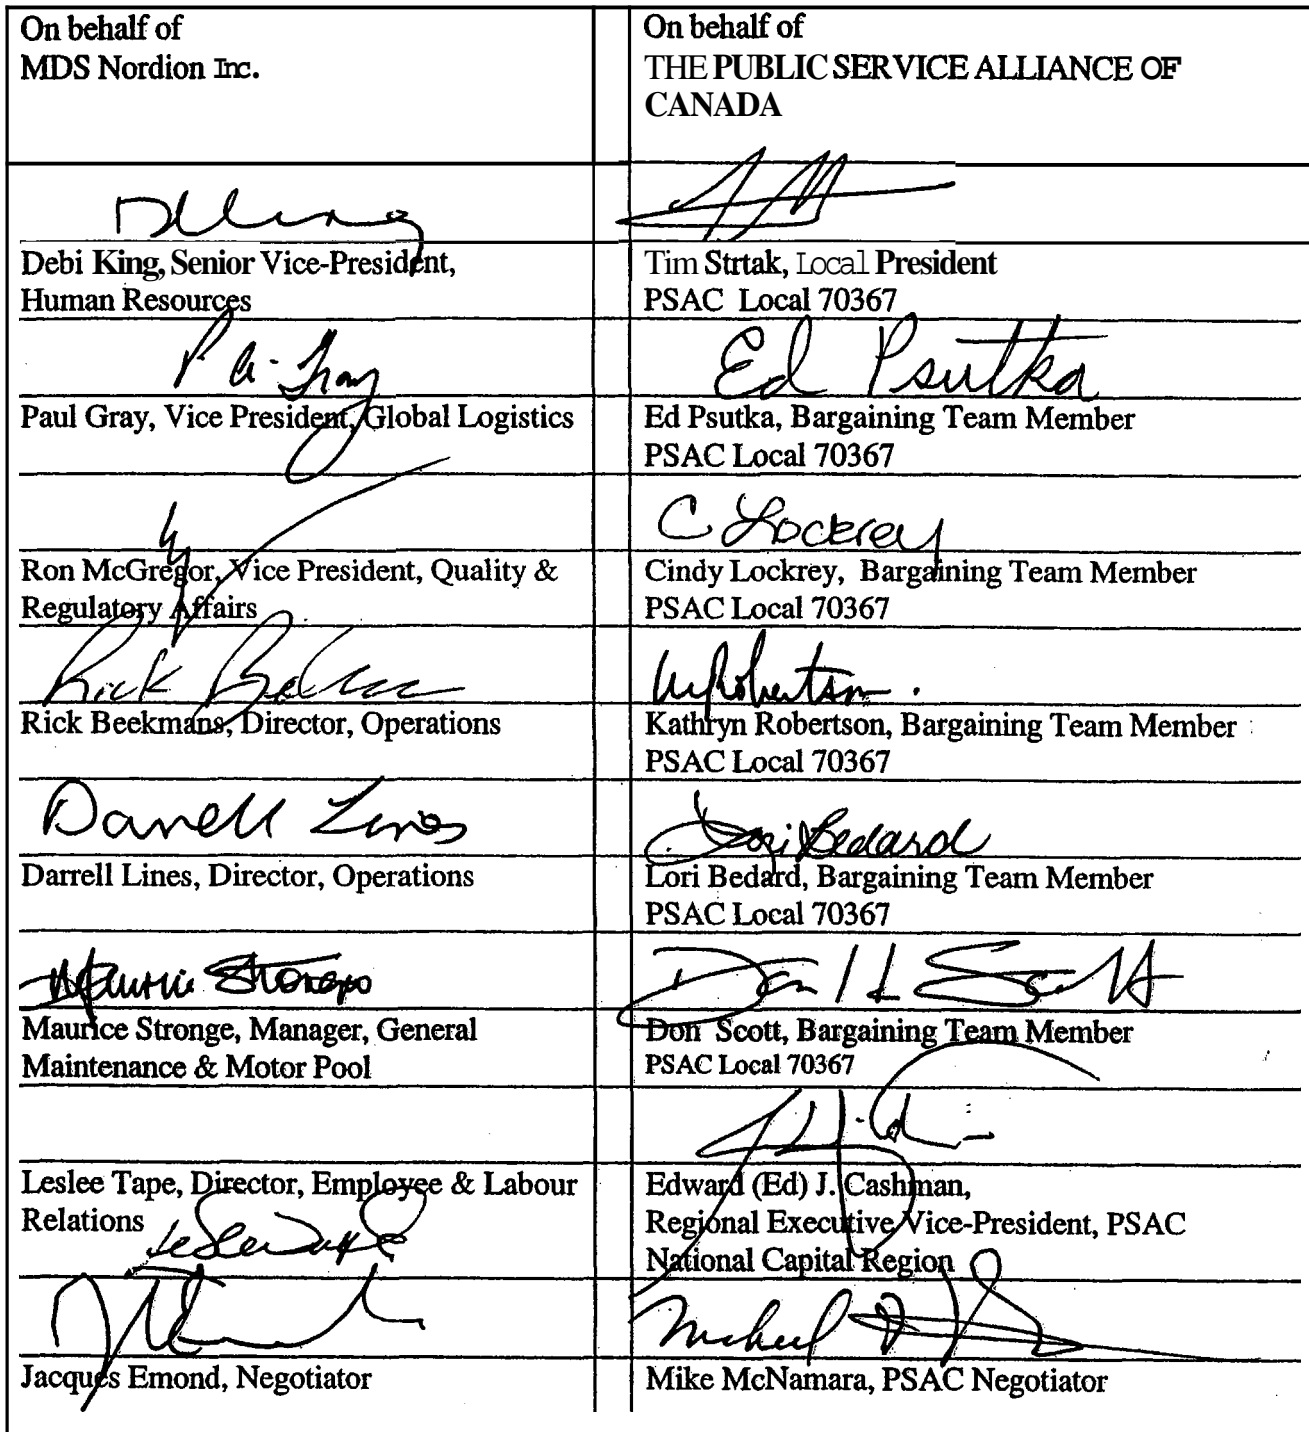 On behalf of
MDS Nordion Inc.
On behalf of
THE PUBLIC SERVICE ALLIANCE OF
CANADA
Debi King, Senior Vice-President,
Human Resources
Tim Strtak, Local President
PSAC Local 70367
P A. Gray
Paul Gray, Vice President, Global Logistics
Ed Psutka
Ed Psutka, Bargaining Team Member
PSAC Local 70367
Ron McGregor, Vice President, Quality &
Regulatory Affairs
C Lockrey
Cindy Lockrey, Bargaining Team Member
PSAC Local 70367
Rick
Rick Beekmans, Director, Operations
Robertson
Kathryn Robertson, Bargaining Team Member
PSAC Local 70367
Darrell Lines
Darrell Lines, Director, Operations
Lori Bedard
Lori Bedard, Bargaining Team Member
PSAC Local 70367
Maurice
Maurice Stronge, Manager, General
Maintenance & Motor Pool
Scott
Don Scott, Bargaining Team Member
PSAC Local 70367
Leslee Tape, Director, Employee & Labour
Relations
Edward (Ed) J. Cashman,
Regional Executive Vice-President, PSAC
National Capital Region
Jacques Emond, Negotiator
Michael
Mike McNamara, PSAC Negotiator